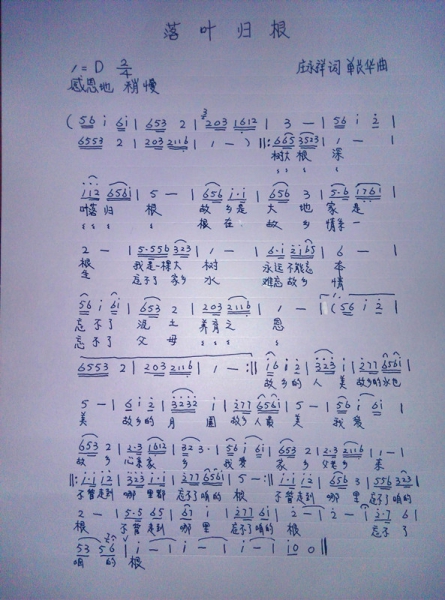 落叶归根
1=D 2/4
庄永祥词 单良华曲
感恩地 稍慢
(56 i 6i | 653 2 | 203 1612 | 3 — | 56 i 2 |
6553 2 | 203 2116 | 1 — ) ‖: 665 3523 | i — |
树大 根 深
i i 2 656i | 5 — | 656 i·i | 656 3 | 5·6 1761 |
叶落 归 根 故 乡是 大 地 家 是
根 在 故 乡 情系一
2 — | 5·556 323 | 1 — | 6·i 2165 | 6 — |
根 我是一棵大 树 永远不能忘 本
生 忘不了 家乡 水 难忘故乡 情
56 i 6i | 653 2 | 203 2116 | 1 — | (56 i 2 |
忘不了 泥 土 养育之 恩
忘不了 父 母
6553 2 | 203 2116 | 1 — :‖ i6 i2 | 323 i | 277 656i |
故乡的 人 美 故乡的水也
5 — | 6 i 2 | 3232 i | 277 656i | 5 — | 56 i 6i |
美 故乡的 月 圆 故乡人最 美 我 爱
653 2 | 2·3 1612 | 32 3· | 56 i 6i | 653 2 | 2·3 2116 | 1 — |
故 乡 心系家 乡 我 爱 家 乡 亲
‖: i·i i2 | 323 i·i | 277 656i | 5 — :‖ i·i i2 | 656 3 | 556 323 |
不管走到 哪里都 忘不了咱的 根 不管走到 哪 里 忘不了咱的
2 — | 5·5 65 | 67 i | 277 6i | 2 — | 2 — | i·7 6 |
根 不管走到 哪 里 忘不了咱的 根 忘不了
53 56 | i — | i — | i — | i 0 0 ‖
咱 的 根